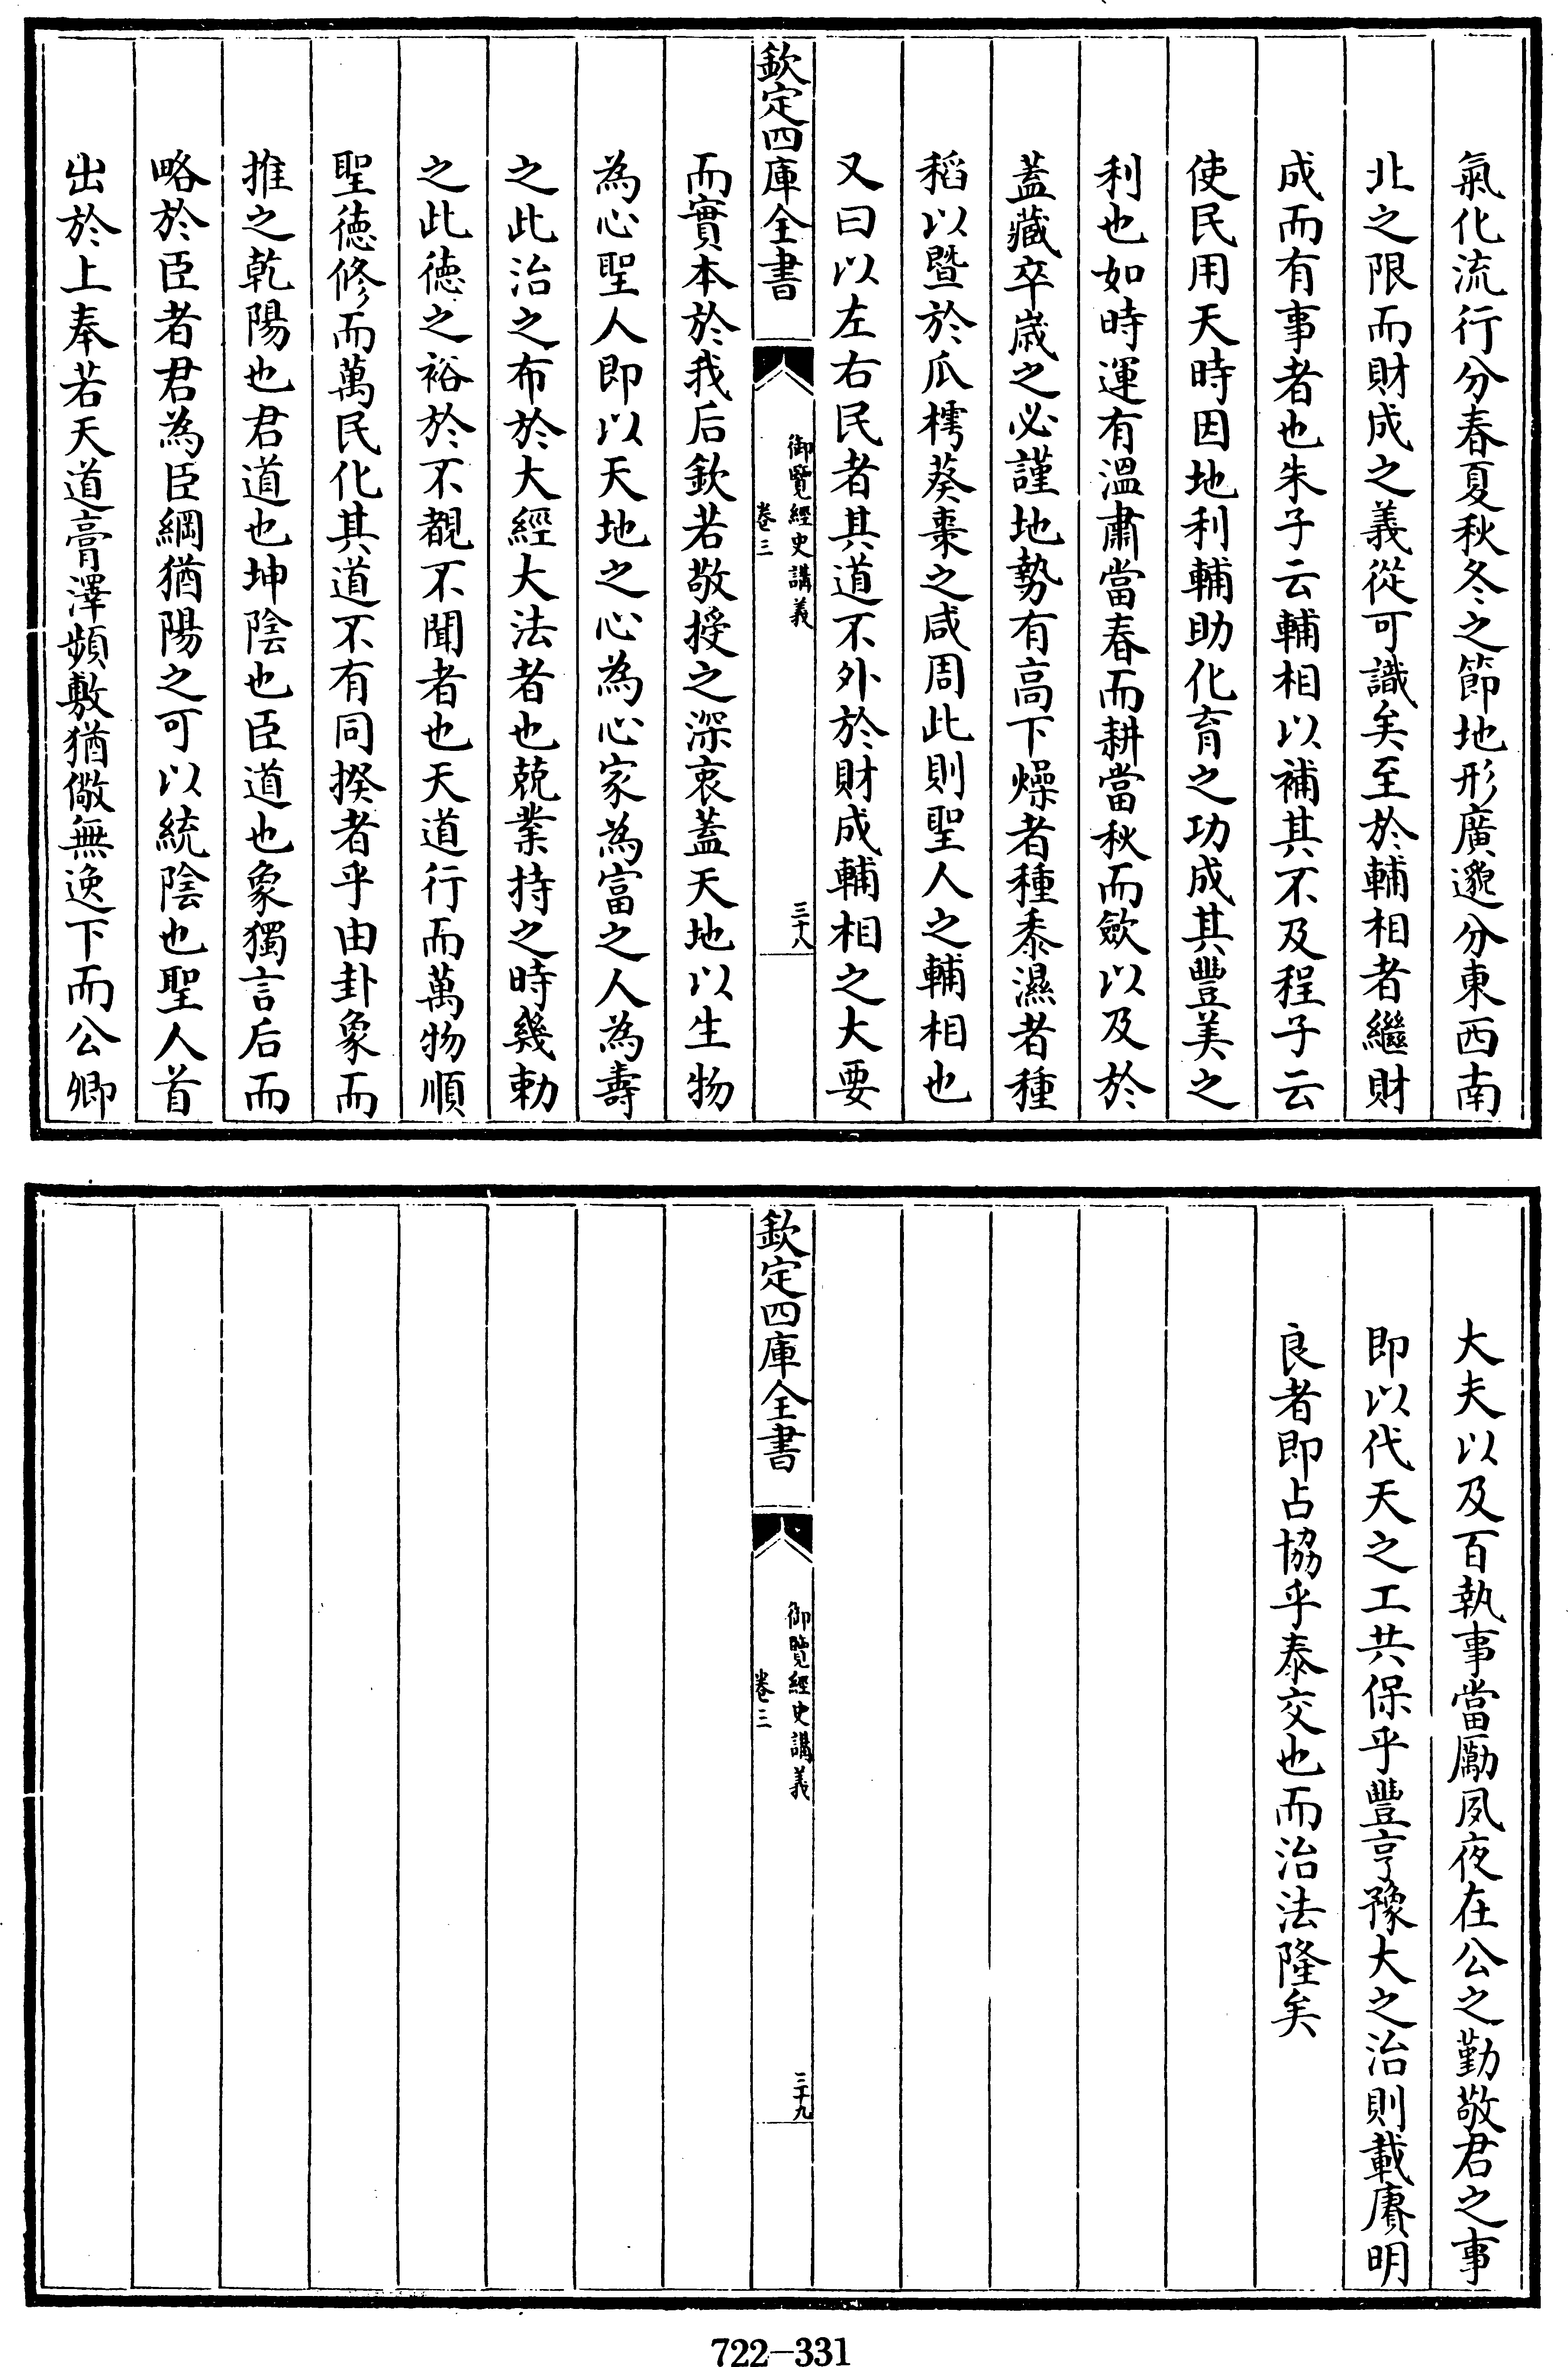 氣化流行分春夏秋冬之節地形廣邈分東西南
北之限而財成之義從可識矣至於輔相者繼財
成而有事者也朱子云輔相以補其不及程子云
使民用天時因地利輔助化育之功成其豐美之
利也如時運有溫肅當春而耕當秋而斂以及於
蓋藏卒歲之必謹地勢有高下燥者種黍濕者種
稻以暨於瓜樗葵棗之咸周此則聖人之輔相也
又曰以左右民者其道不外於財成輔相之大要
欽定四庫全書
御覽經史講義
卷三
三十八
而實本於我后欽若敬授之深衷蓋天地以生物
為心聖人即以天地之心為心家為富之人為壽
之此治之布於大經大法者也兢業持之時幾勅
之此徳之裕於不覩不聞者也天道行而萬物順
聖徳修而萬民化其道不有同揆者乎由卦象而
推之乾陽也君道也坤陰也臣道也象獨言后而
略於臣者君為臣綱猶陽之可以統陰也聖人首
出於上奉若天道膏澤頻敷猶儆無逸下而公卿
大夫以及百執事當勵夙夜在公之勤敬君之事
即以代天之工共保乎豐亨豫大之治則載賡明
良者即占協乎泰交也而治法隆矣
欽定四庫全書
御覽經史講義
卷三
三十九
722-331